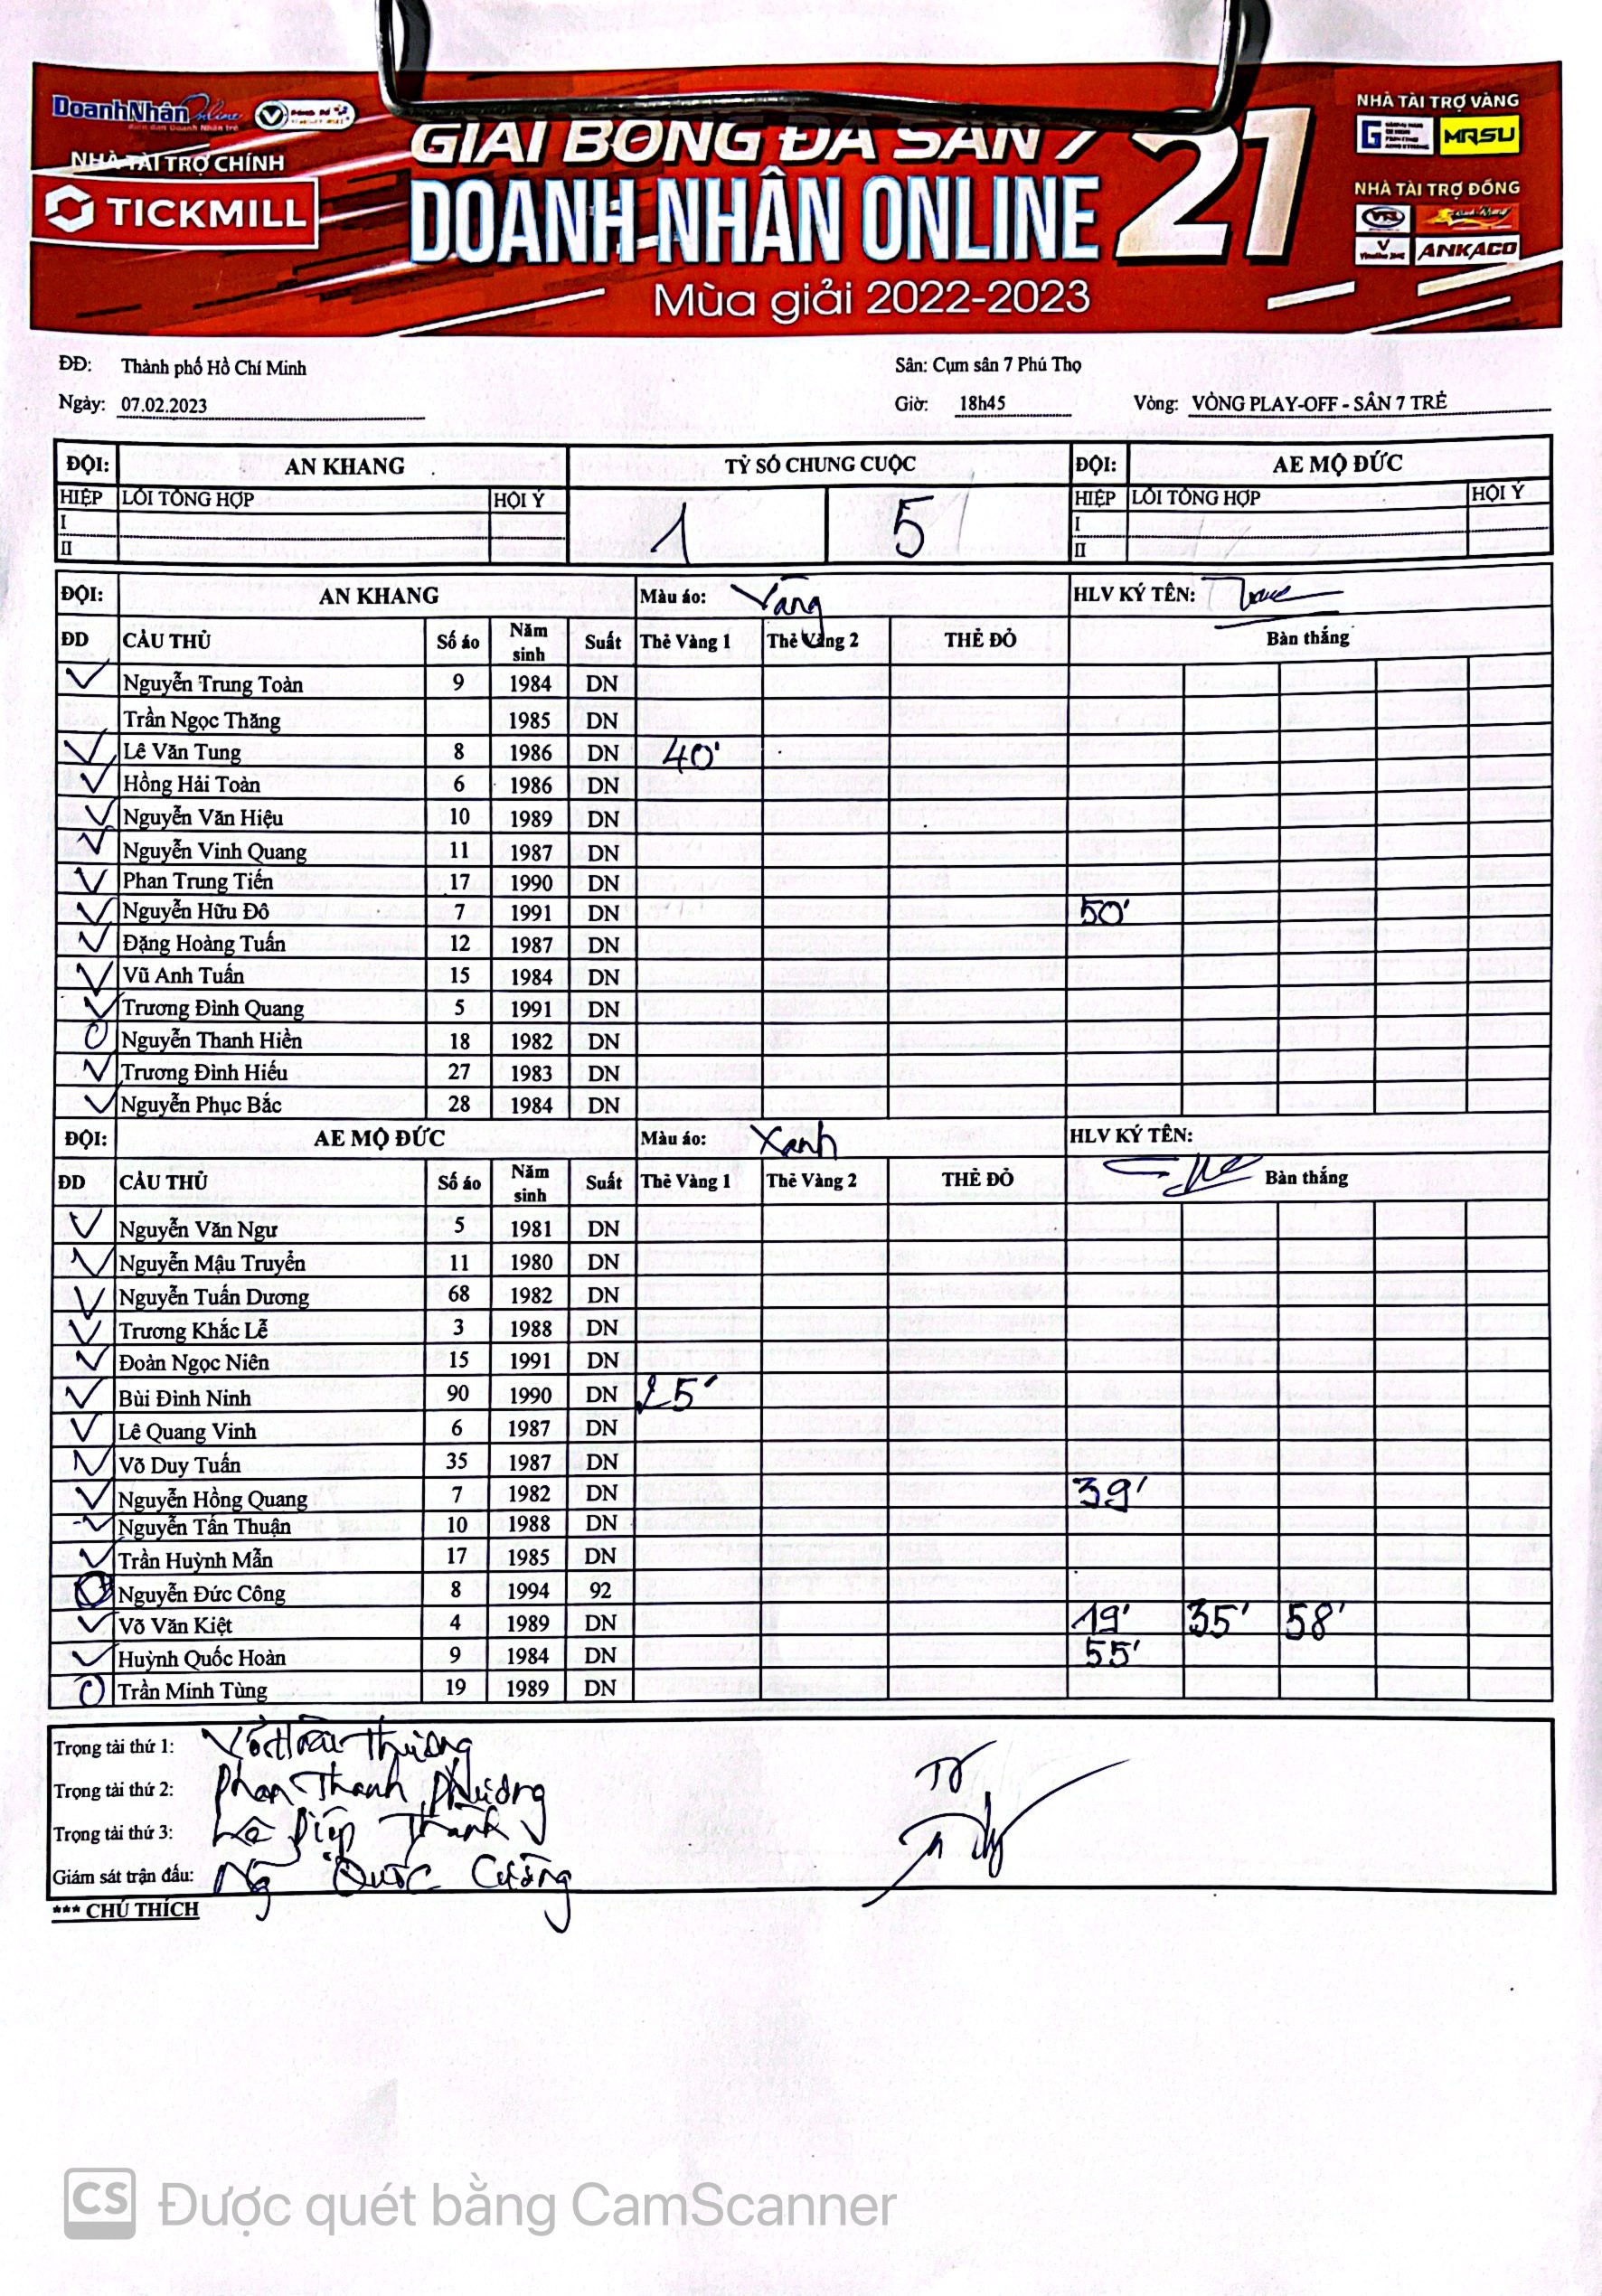 DoanhNhân Online
NHÀ TÀI TRỢ CHÍNH
TICKMILL
GIẢI BÓNG ĐÁ SÂN 7
DOANH NHÂN ONLINE 21
Mùa giải 2022-2023
NHÀ TÀI TRỢ VÀNG
MRSU
NHÀ TÀI TRỢ ĐỒNG
ANKACO
ĐĐ: Thành phố Hồ Chí Minh Sân: Cụm sân 7 Phú Thọ
Ngày: 07.02.2023 Giờ: 18h45 Vòng: VÒNG PLAY-OFF - SÂN 7 TRẺ
ĐỘI: AN KHANG TỶ SỐ CHUNG CUỘC ĐỘI: AE MỘ ĐỨC
HIỆP LỖI TỔNG HỢP HỘI Ý 1 5 HIỆP LỖI TỔNG HỢP HỘI Ý
I I
II II
ĐỘI: AN KHANG Màu áo: Vàng HLV KÝ TÊN:
ĐD CẦU THỦ Số áo Năm sinh Suất Thẻ Vàng 1 Thẻ Vàng 2 THẺ ĐỎ Bàn thắng
Nguyễn Trung Toàn 9 1984 DN
Trần Ngọc Thăng 1985 DN
Lê Văn Tung 8 1986 DN 40'
Hồng Hải Toàn 6 1986 DN
Nguyễn Văn Hiệu 10 1989 DN
Nguyễn Vinh Quang 11 1987 DN
Phan Trung Tiến 17 1990 DN
Nguyễn Hữu Đô 7 1991 DN 50'
Đặng Hoàng Tuấn 12 1987 DN
Vũ Anh Tuấn 15 1984 DN
Trương Đình Quang 5 1991 DN
Nguyễn Thanh Hiền 18 1982 DN
Trương Đình Hiếu 27 1983 DN
Nguyễn Phục Bắc 28 1984 DN
ĐỘI: AE MỘ ĐỨC Màu áo: Xanh HLV KÝ TÊN:
ĐD CẦU THỦ Số áo Năm sinh Suất Thẻ Vàng 1 Thẻ Vàng 2 THẺ ĐỎ Bàn thắng
Nguyễn Văn Ngư 5 1981 DN
Nguyễn Mậu Truyển 11 1980 DN
Nguyễn Tuấn Dương 68 1982 DN
Trương Khắc Lễ 3 1988 DN
Đoàn Ngọc Niên 15 1991 DN
Bùi Đình Ninh 90 1990 DN 25'
Lê Quang Vinh 6 1987 DN
Võ Duy Tuấn 35 1987 DN
Nguyễn Hồng Quang 7 1982 DN 39'
Nguyễn Tấn Thuận 10 1988 DN
Trần Huỳnh Mẫn 17 1985 DN
Nguyễn Đức Công 8 1994 92
Võ Văn Kiệt 4 1989 DN 19' 35' 58'
Huỳnh Quốc Hoàn 9 1984 DN 55'
Trần Minh Tùng 19 1989 DN
Trọng tài thứ 1:
Trọng tài thứ 2: Phan Thanh Phương
Trọng tài thứ 3: Lê Thành
Giám sát trận đấu: Ng Quốc Cường
*** CHÚ THÍCH
CS Được quét bằng CamScanner